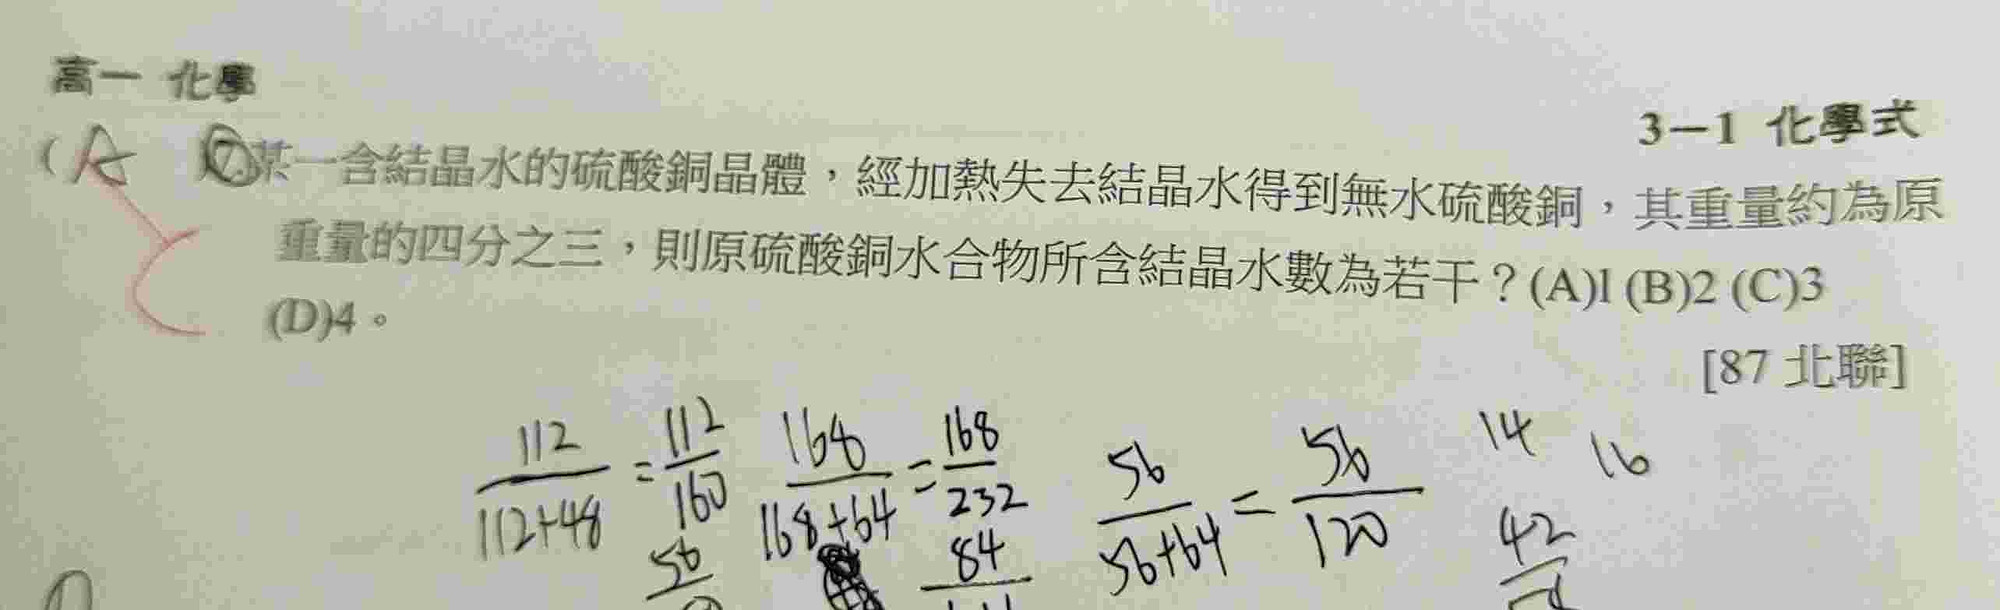 高一 化學
3－1 化學式
(A 7.某一含結晶水的硫酸銅晶體，經加熱失去結晶水得到無水硫酸銅，其重量約為原
重量的四分之三，則原硫酸銅水合物所含結晶水數為若干？(A)1 (B)2 (C)3
(D)4。
[87 北聯]
112/112+48 = 112/160 168/168+64 = 168/232 56/56+64 = 56/120 14 16
56 84 42